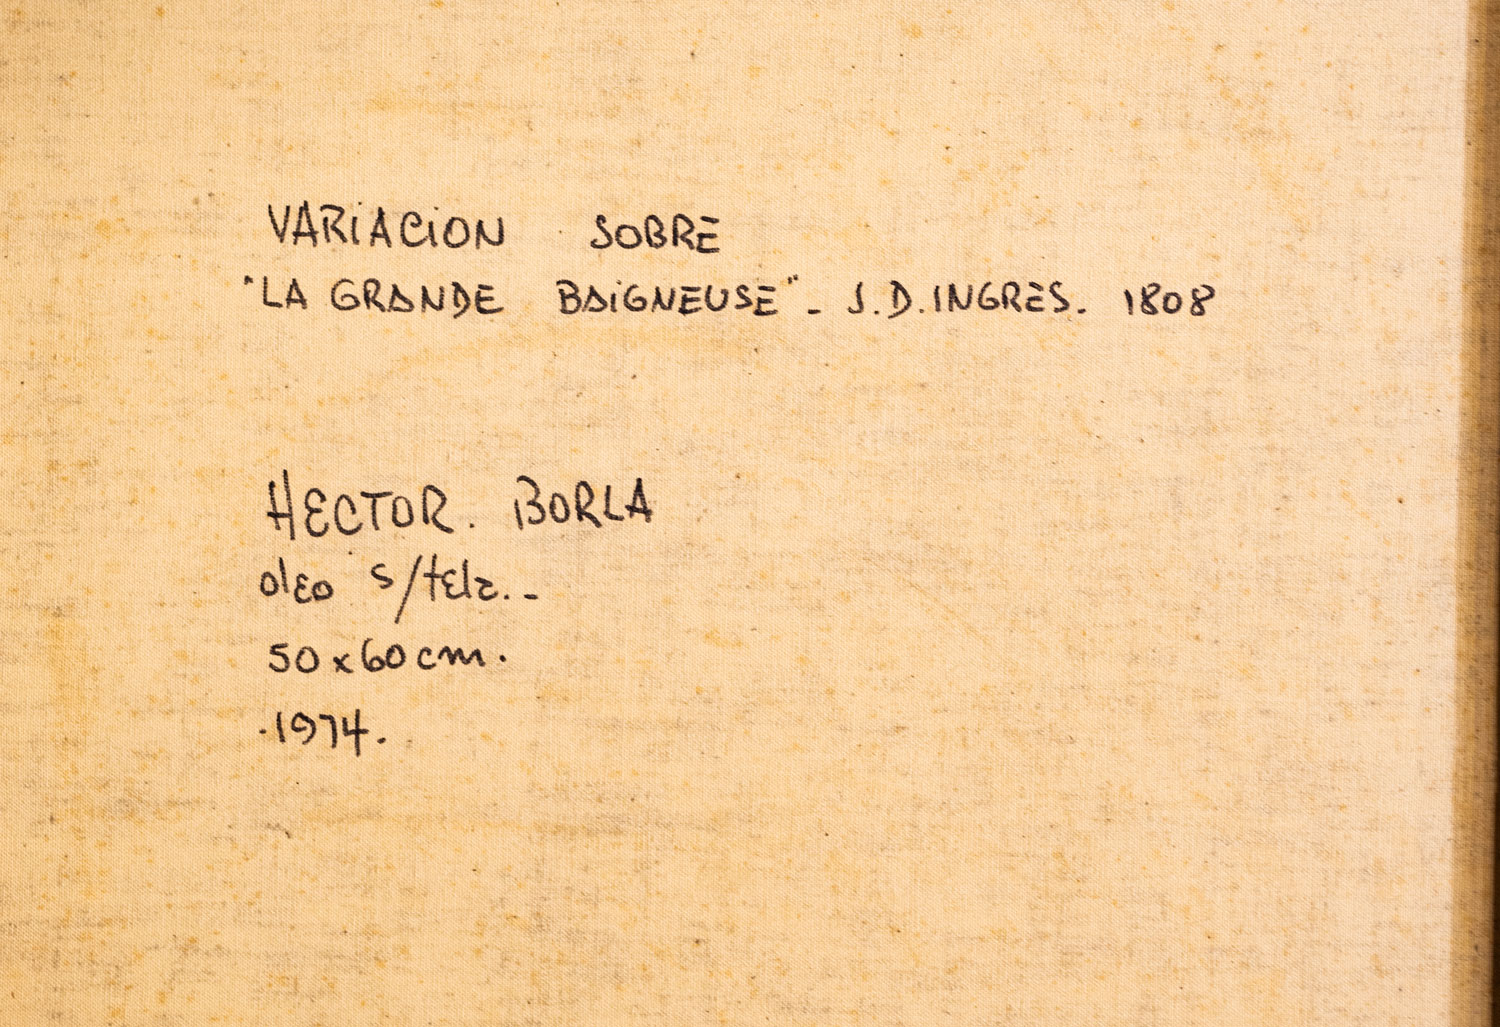 VARIACION SOBRE
"LA GRANDE BAIGNEUSE" - J.D. INGRES. 1808
HECTOR. BORLA
oleo s/tela. -
50 x 60 cm.
.1974.